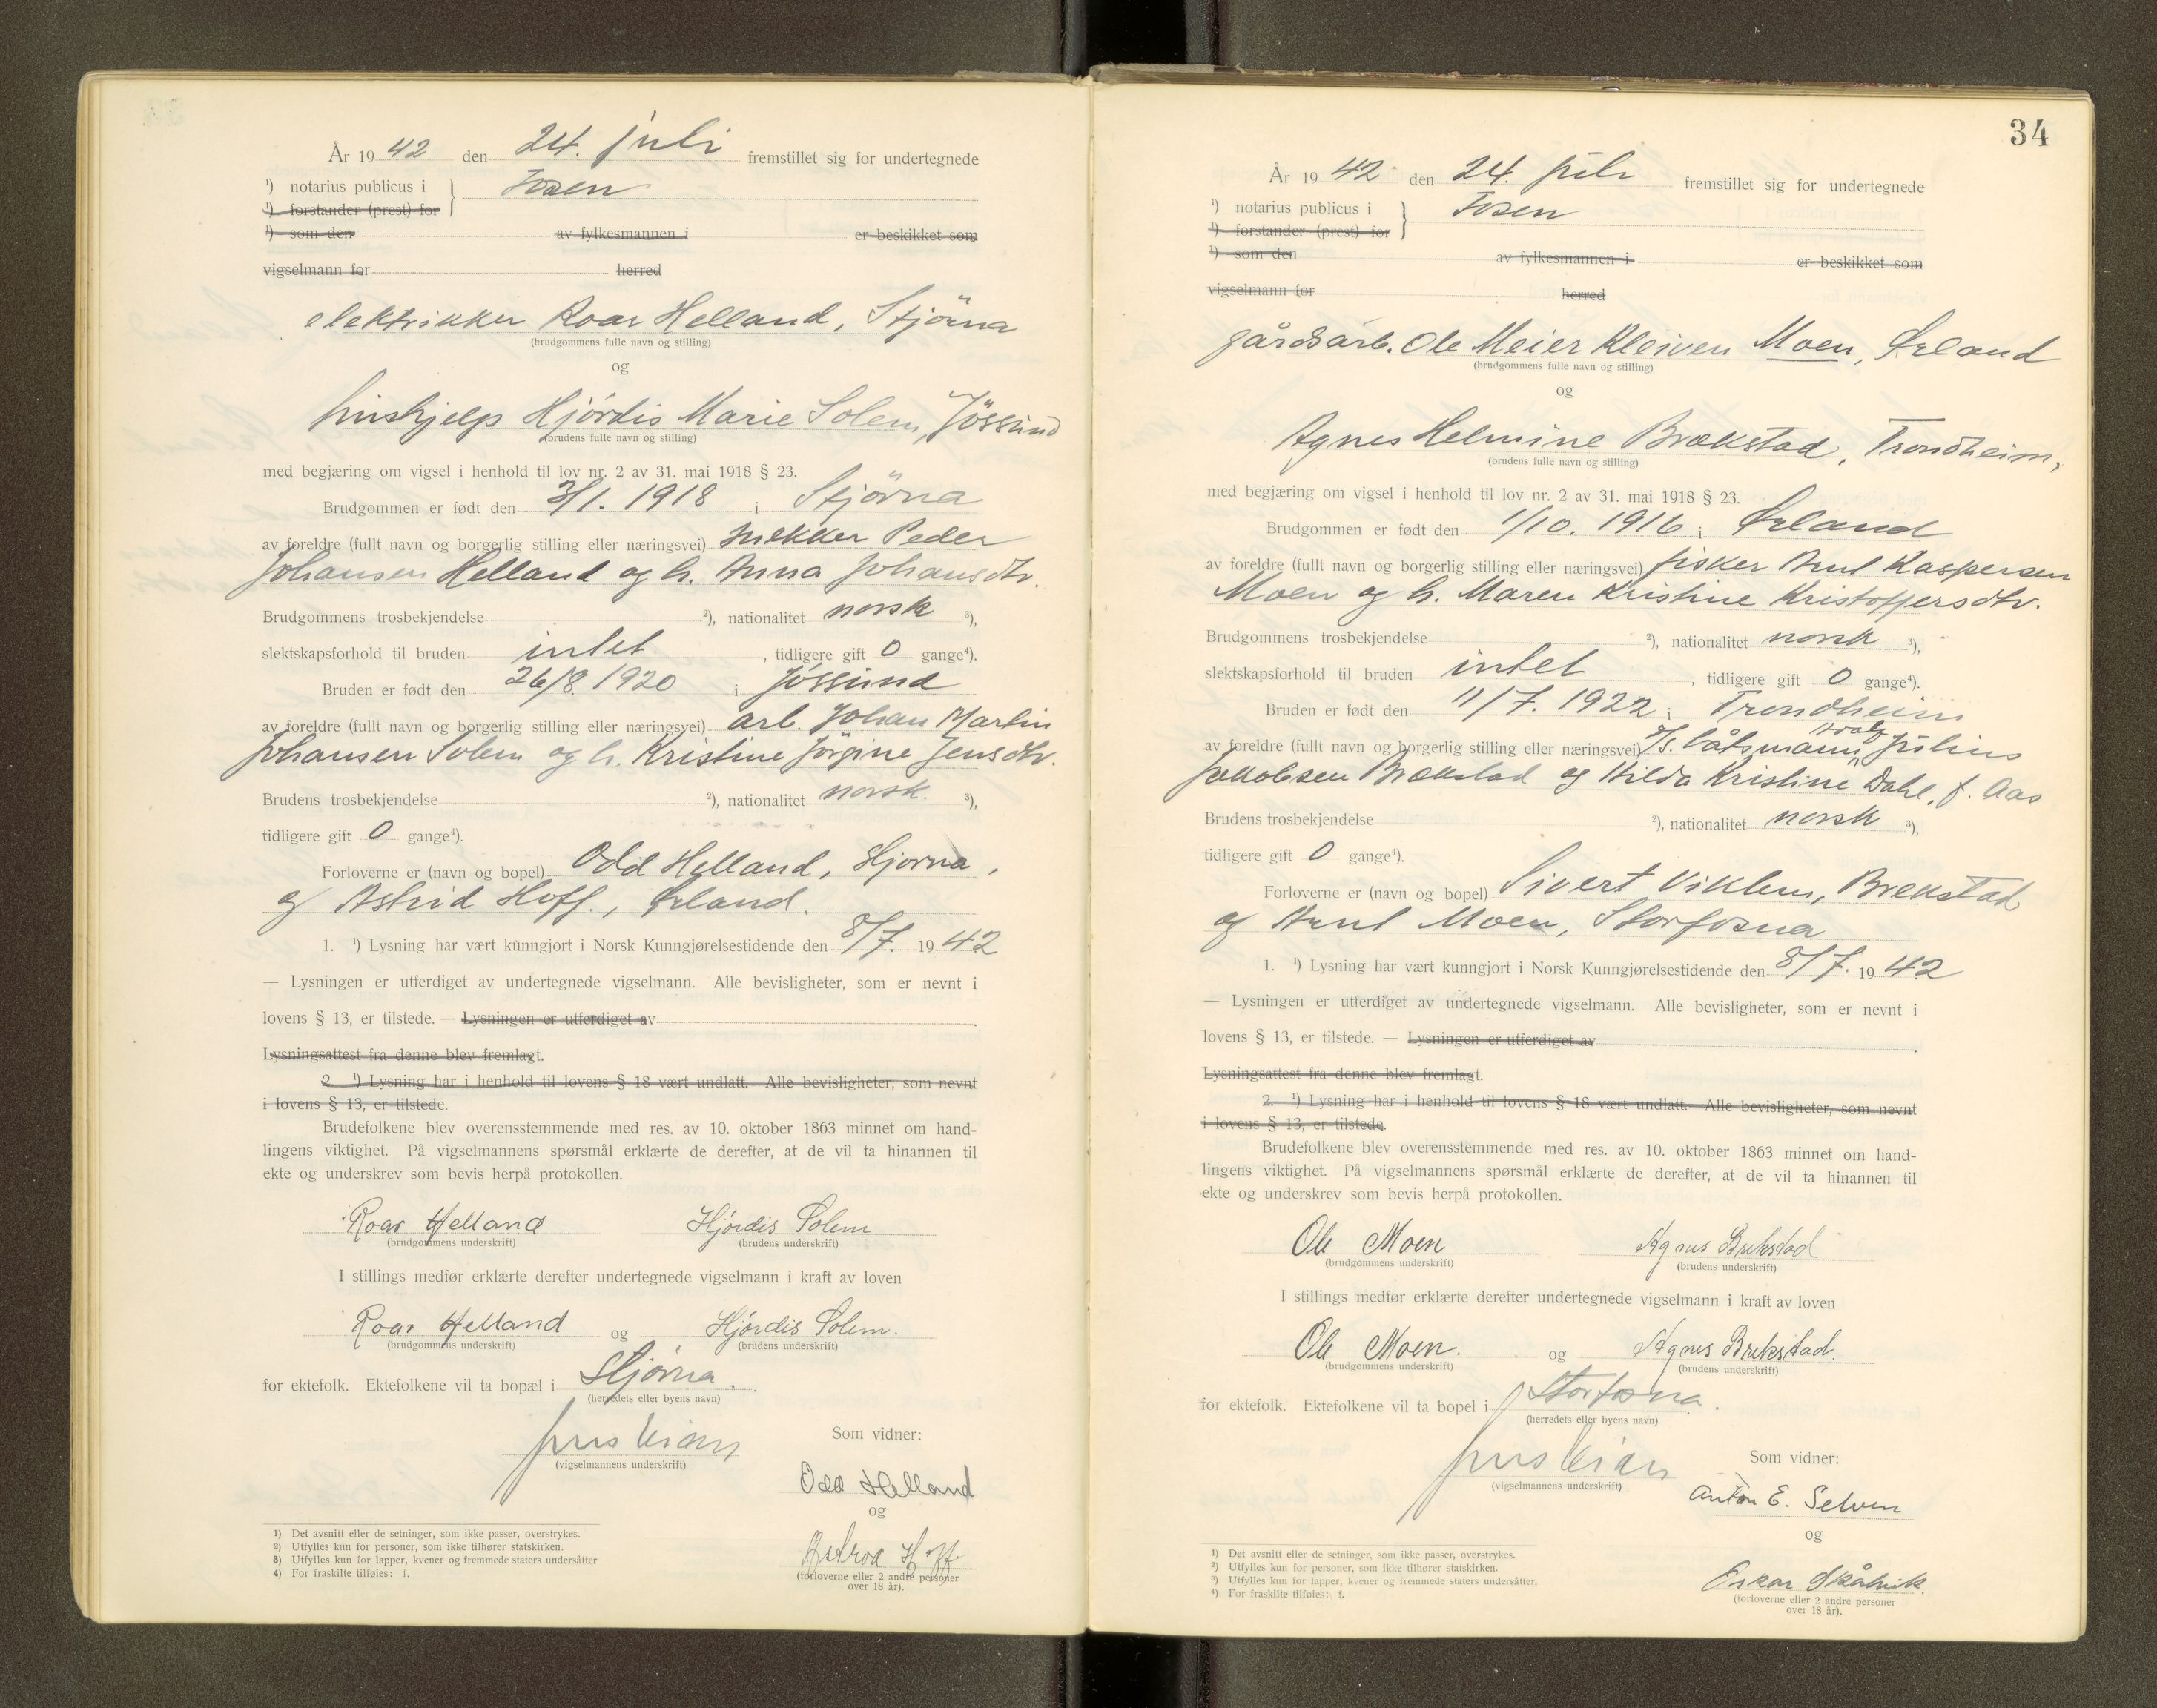 År 1942 den 24. juli fremstillet sig for undertegnede
¹) notarius publicus i } Fosen
¹) forstander (prest) for
¹) som den av fylkesmannen i er beskikket som
vigselmann for herred
elektrikker Roar Helland, Stjörna
(brudgommens fulle navn og stilling)
og
hushjelp Hjördis Marie Solem, Jössund
(brudens fulle navn og stilling)
med begjæring om vigsel i henhold til lov nr. 2 av 31. mai 1918 § 23.
Brudgommen er født den 3/1. 1918 i Stjörna
av foreldre (fullt navn og borgerlig stilling eller næringsvei) snekker Peder
Johansen Helland og h. Anna Johansdtr.
Brudgommens trosbekjendelse ²), nationalitet norsk ³),
slektskapsforhold til bruden intet, tidligere gift 0 gange⁴).
Bruden er født den 26/8. 1920 i Jössund
av foreldre (fullt navn og borgerlig stilling eller næringsvei) arb. Johan Martin
Johansen Solem og h. Kristine Jörgine Jensdtr.
Brudens trosbekjendelse ²), nationalitet norsk. ³),
tidligere gift 0 gange⁴).
Forloverne er (navn og bopel) Odd Helland, Stjorna,
og Astrid Hoff., Ørland.
1. ¹) Lysning har vært kunngjort i Norsk Kunngjørelsestidende den 8/7. 1942
— Lysningen er utferdiget av undertegnede vigselmann. Alle bevisligheter, som er nevnt i
lovens § 13, er tilstede. — Lysningen er utferdiget av .
Lysningsattest fra denne blev fremlagt.
2. ¹) Lysning har i henhold til lovens § 18 vært undlatt. Alle bevisligheter, som nevnt
i lovens § 13, er tilstede.
Brudefolkene blev overensstemmende med res. av 10. oktober 1863 minnet om hand-
lingens viktighet. På vigselmannens spørsmål erklærte de derefter, at de vil ta hinannen til
ekte og underskrev som bevis herpå protokollen.
Roar Helland Hjördis Solem
(brudgommens underskrift) (brudens underskrift)
I stillings medfør erklærte derefter undertegnede vigselmann i kraft av loven
Roar Helland og Hjördis Solem.
(brudgommens underskrift) (brudens underskrift)
for ektefolk. Ektefolkene vil ta bopæl i Stjørna.
(herredets eller byens navn)
Som vidner:
(vigselmannens underskrift)
Odd Helland
og
Astrid Hoff
(forloverne eller 2 andre personer
over 18 år).
1) Det avsnitt eller de setninger, som ikke passer, overstrykes.
2) Utfylles kun for personer, som ikke tilhører statskirken.
3) Utfylles kun for lapper, kvener og fremmede staters undersåtter
4) For fraskilte tilføies: f.
34
År 1942 den 24. juli fremstillet sig for undertegnede
¹) notarius publicus i } Fosen
¹) forstander (prest) for
¹) som den av fylkesmannen i er beskikket som
vigselmann for herred
gårdsarb. Ole Meier Kleiven Moen, Ørland
(brudgommens fulle navn og stilling)
og
Agnes Helmine Brækstad, Trondheim,
(brudens fulle navn og stilling)
med begjæring om vigsel i henhold til lov nr. 2 av 31. mai 1918 § 23.
Brudgommen er født den 1/10. 1916 i Ørland
av foreldre (fullt navn og borgerlig stilling eller næringsvei) fisker Arnt Kaspersen
Moen og h. Maren Kristine Kristoffersdtr.
Brudgommens trosbekjendelse ²), nationalitet norsk ³),
slektskapsforhold til bruden intet, tidligere gift 0 gange⁴).
Bruden er født den 11/7. 1922 i Trondheim
av foreldre (fullt navn og borgerlig stilling eller næringsvei) båtsmann Julius
Jakobsen Brækstad og Hilda Kristine Dahl, f. Aas
Brudens trosbekjendelse ²), nationalitet norsk ³),
tidligere gift 0 gange⁴).
Forloverne er (navn og bopel) Sivert Viklem, Brekstad
og Arnt Moen, Storfosna
1. ¹) Lysning har vært kunngjort i Norsk Kunngjørelsestidende den 8/7. 1942
— Lysningen er utferdiget av undertegnede vigselmann. Alle bevisligheter, som er nevnt i
lovens § 13, er tilstede. — Lysningen er utferdiget av .
Lysningsattest fra denne blev fremlagt.
2. ¹) Lysning har i henhold til lovens § 18 vært undlatt. Alle bevisligheter, som nevnt
i lovens § 13, er tilstede.
Brudefolkene blev overensstemmende med res. av 10. oktober 1863 minnet om hand-
lingens viktighet. På vigselmannens spørsmål erklærte de derefter, at de vil ta hinannen til
ekte og underskrev som bevis herpå protokollen.
Ole Moen Agnes Brekstad
(brudgommens underskrift) (brudens underskrift)
I stillings medfør erklærte derefter undertegnede vigselmann i kraft av loven
Ole Moen. og Agnes Brekstad.
(brudgommens underskrift) (brudens underskrift)
for ektefolk. Ektefolkene vil ta bopel i Storfosna.
(herredets eller byens navn)
Som vidner:
(vigselmannens underskrift)
Anton E. Selven
og
Oskar Skålvik.
(forloverne eller 2 andre personer
over 18 år).
¹) Det avsnitt eller de setninger, som ikke passer, overstrykes.
²) Utfylles kun for personer, som ikke tilhører statskirken.
³) Utfylles kun for lapper, kvener og fremmede staters undersåtter.
⁴) For fraskilte tilføies: f.